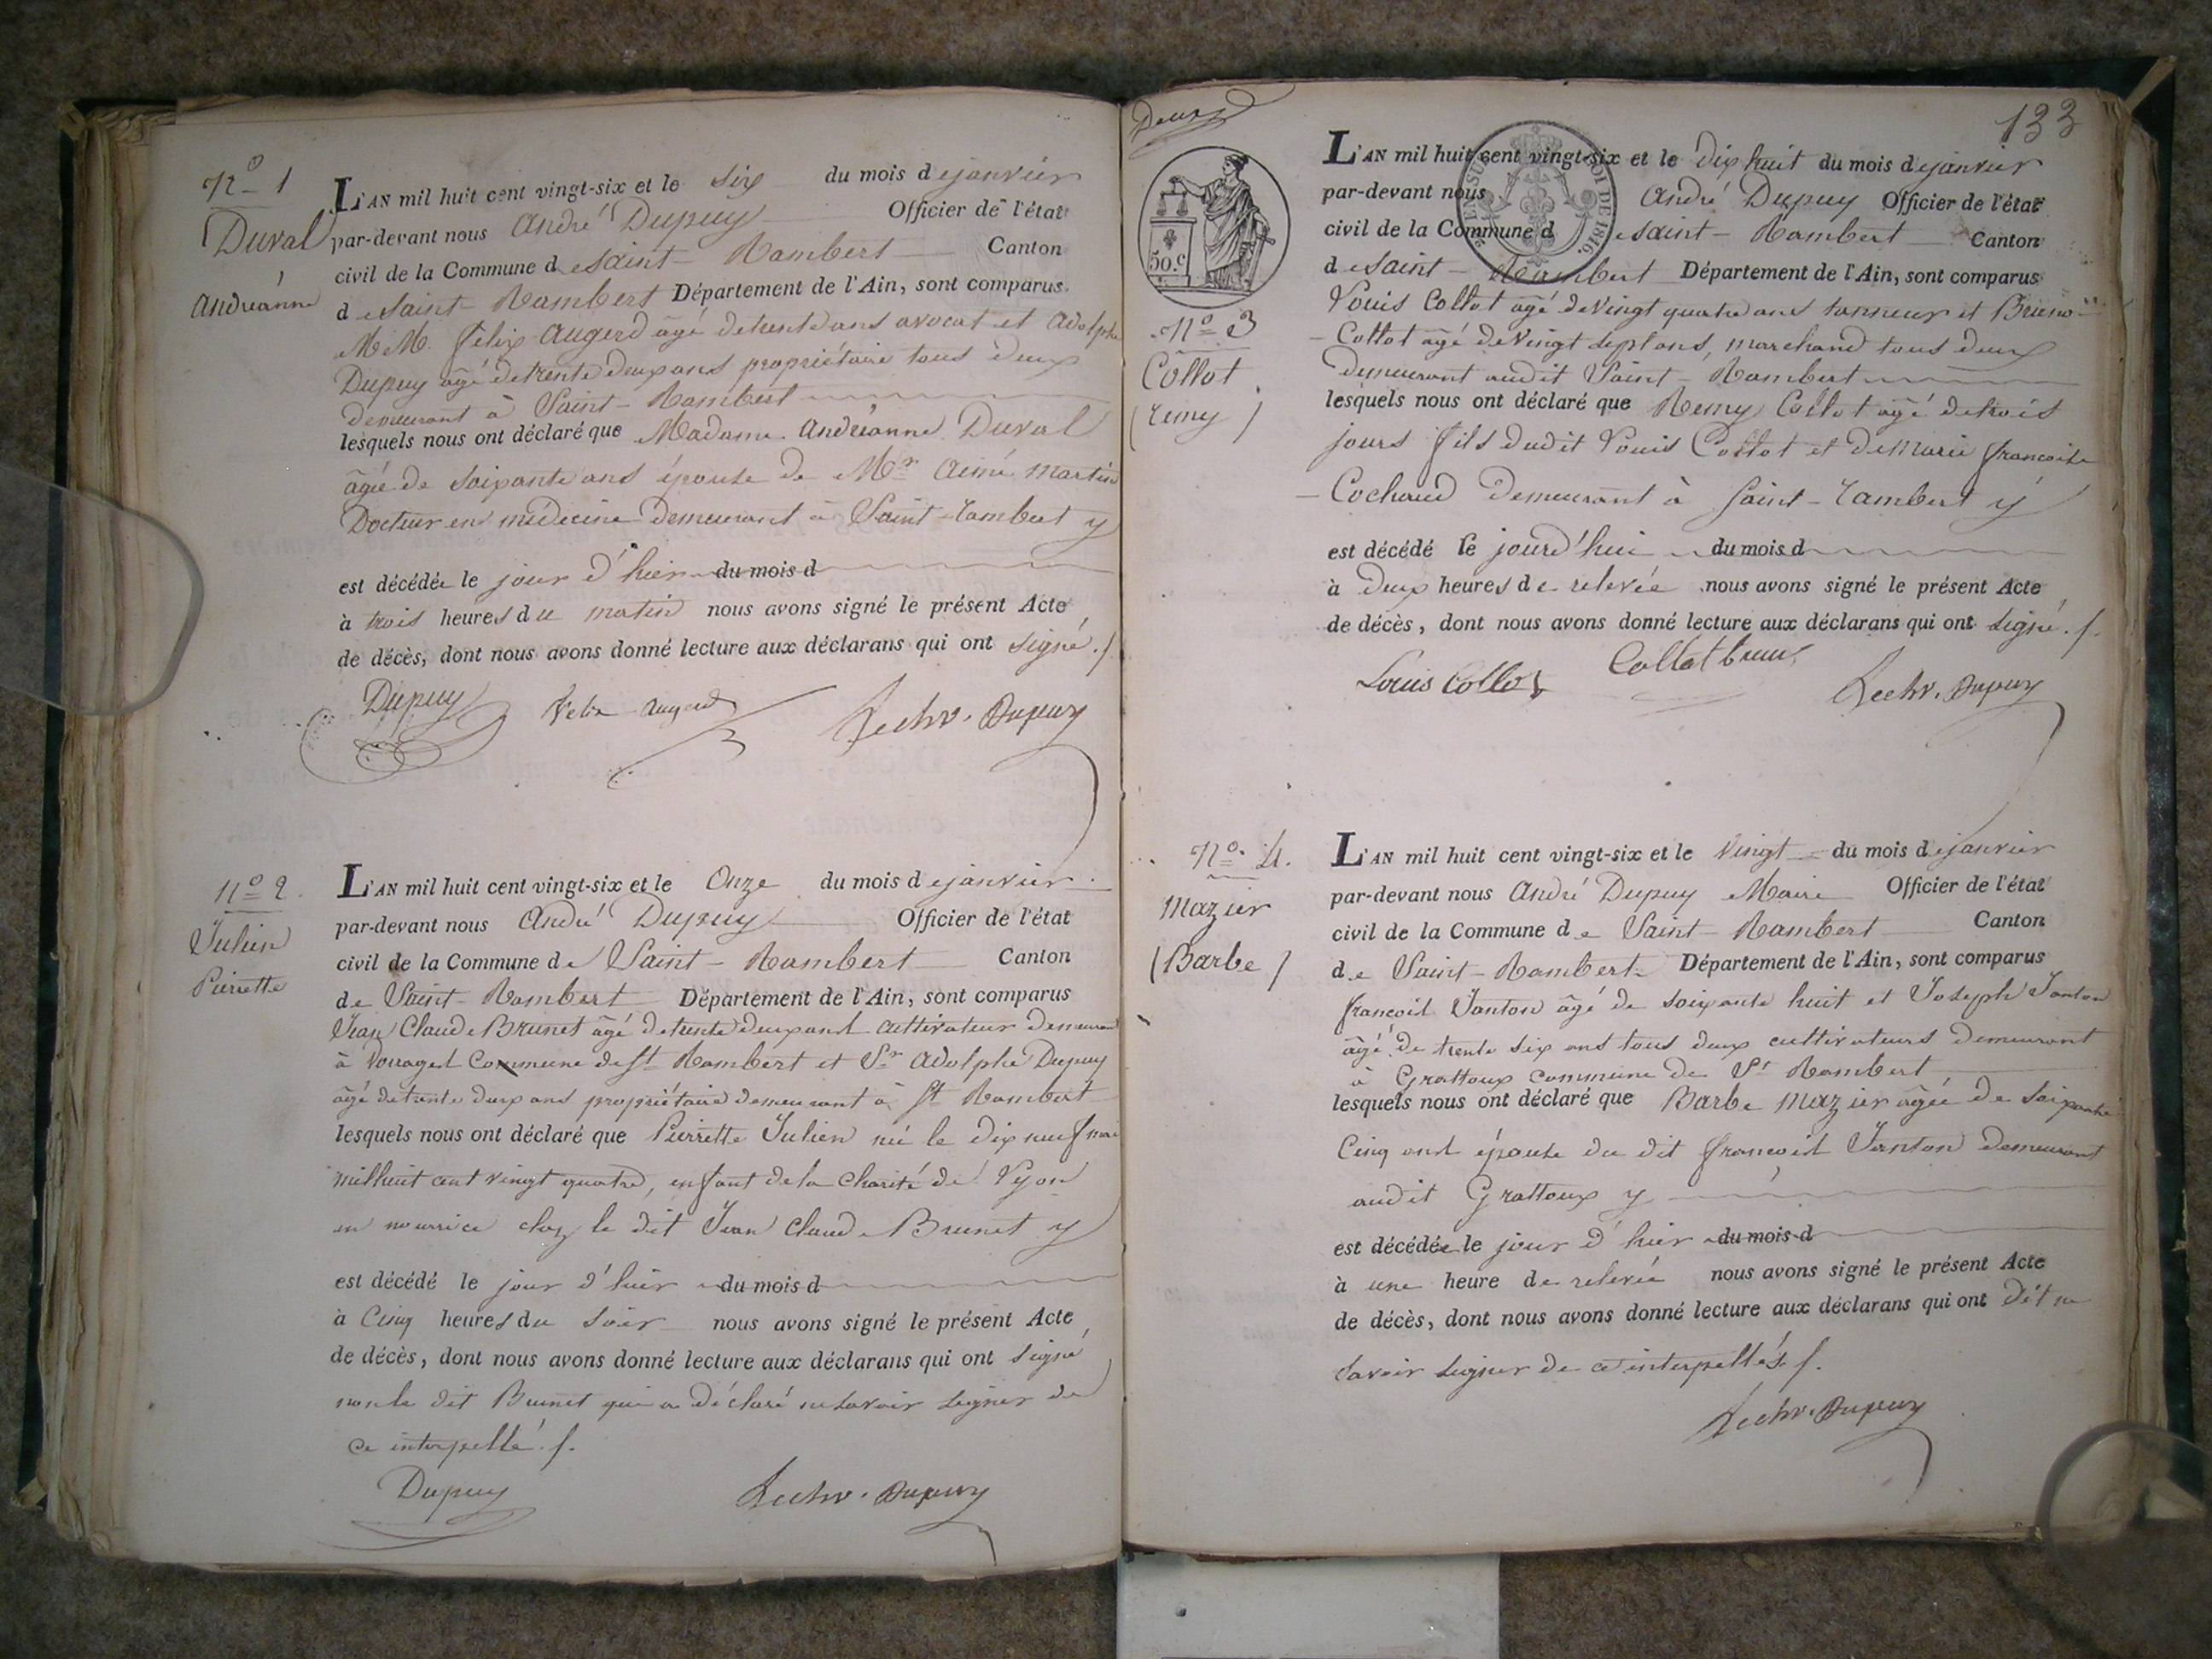 N° 1
Duval
Andréanne
L'AN mil huit cent vingt-six et le six du mois de janvier
par-devant nous André Dupuy Officier de l'état
civil de la Commune de saint-Rambert Canton
de saint-Rambert Département de l'Ain, sont comparus
M.M. félix Augerd âgé de trente ans avocat et Adolphe
Dupuy âgé de trente deux ans propriétaire tous deux
demeurant à Saint-Rambert
lesquels nous ont déclaré que Madame Andréanne Duval
âgée de soixante ans épouse de Mr Aimé Martin
Docteur en médecine demeurant à Saint-rambert y
est décédée le jour d'hier du mois d
à trois heures du matin nous avons signé le présent Acte
de décès, dont nous avons donné lecture aux déclarans qui ont signé ./.
Dupuy felix augerd Dupuy
N° 2.
Julien
Pierrette
L'AN mil huit cent vingt-six et le Onze du mois de janvier
par-devant nous André Dupuy Officier de l'état
civil de la Commune de Saint-Rambert Canton
de Saint-Rambert Département de l'Ain, sont comparus
Jean Claude Brunet âgé de trente deux ans cultivateur demeurant
à Commune de St Rambert et Sr Adolphe Dupuy
âgé de trente deux ans propriétaire demeurant à St Rambert
lesquels nous ont déclaré que Pierrette Julien né le dix neuf mai
mil huit cent vingt quatre, enfant de la Charité de Lyon
en nourrice chez le dit Jean Claude Brunet y
est décédé le jour d'hier du mois d
à Cinq heures du soir nous avons signé le présent Acte
de décès, dont nous avons donné lecture aux déclarans qui ont signé
non le dit Brunet qui a déclaré ne savoir signer de
ce interpellé ./.
Dupuy Dupuy
Deux
133
50.c
EN SUS
LOI DE 1816.
N° 3
Collot
(remy)
L'AN mil huit cent vingt-six et le dix huit du mois de janvier
par-devant nous André Dupuy Officier de l'état
civil de la Commune de saint-Rambert Canton
de saint-Rambert Département de l'Ain, sont comparus
Louis Collot âgé de vingt quatre ans tanneur et Bruno
Collot âgé de vingt sept ans, marchand tous deux
demeurant audit Saint-Rambert
lesquels nous ont déclaré que Remy Collot âgé de trois
jours fils dudit Louis Collot et de Marie françoise
Cochaud demeurant à saint-rambert y
est décédé le jourd'hui du mois d
à deux heures de relevée nous avons signé le présent Acte
de décès, dont nous avons donné lecture aux déclarans qui ont signé ./.
Louis Collot Collot bruno Dupuy
N° 4.
Mazuir
(Barbe)
L'AN mil huit cent vingt-six et le Vingt du mois de janvier
par-devant nous André Dupuy Maire Officier de l'état
civil de la Commune de Saint-Rambert Canton
de Saint-Rambert Département de l'Ain, sont comparus
françois Janton âgé de soixante huit et Joseph Janton
âgé de trente six ans tous deux cultivateurs demeurant
à Grattoux commune de St Rambert
lesquels nous ont déclaré que Barbe Mazuir âgée de soixante
Cinq ans épouse du dit françois Janton demeurant
audit Grattoux y
est décédée le jour d'hier du mois d
à une heure de relevée nous avons signé le présent Acte
de décès, dont nous avons donné lecture aux déclarans qui ont dit ne
savoir signer de ce interpellés ./.
Dupuy